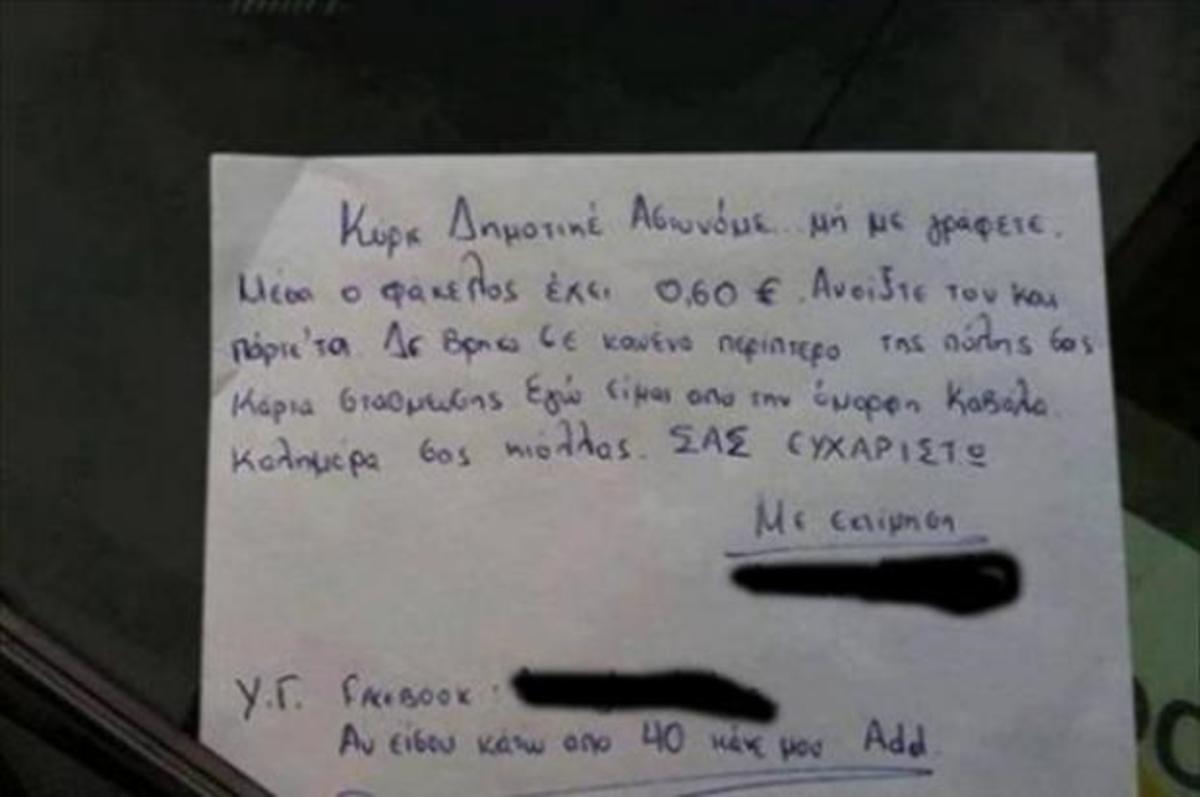 Κύριε Δημοτικέ Αστυνόμε.. μή με γράφετε.
Μέσα ο φάκελος έχει 0,60 €. Ανοίξτε τον και
πάρτε'τα. Δε βρήκα σε κανένα περίπτερο της πόλης σας
κάρτα στάθμευσης Εγώ είμαι απο την όμορφη Καβάλα.
Καλημέρα σας κιόλλας. ΣΑΣ ΕΥΧΑΡΙΣΤΩ
Με εκτίμηση
Υ.Γ. FACEBOOK :
Αν είσαι κάτω απο 40 κάνε μου Add.